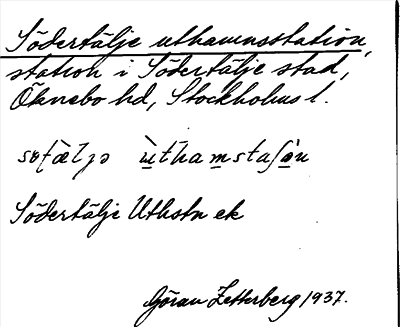 Södertälje uthamnsstation,
station i Södertälje stad,
Öknebo hd, Stockholms l.
Södertälje Uthstn ek
Göran Zetterberg 1937.